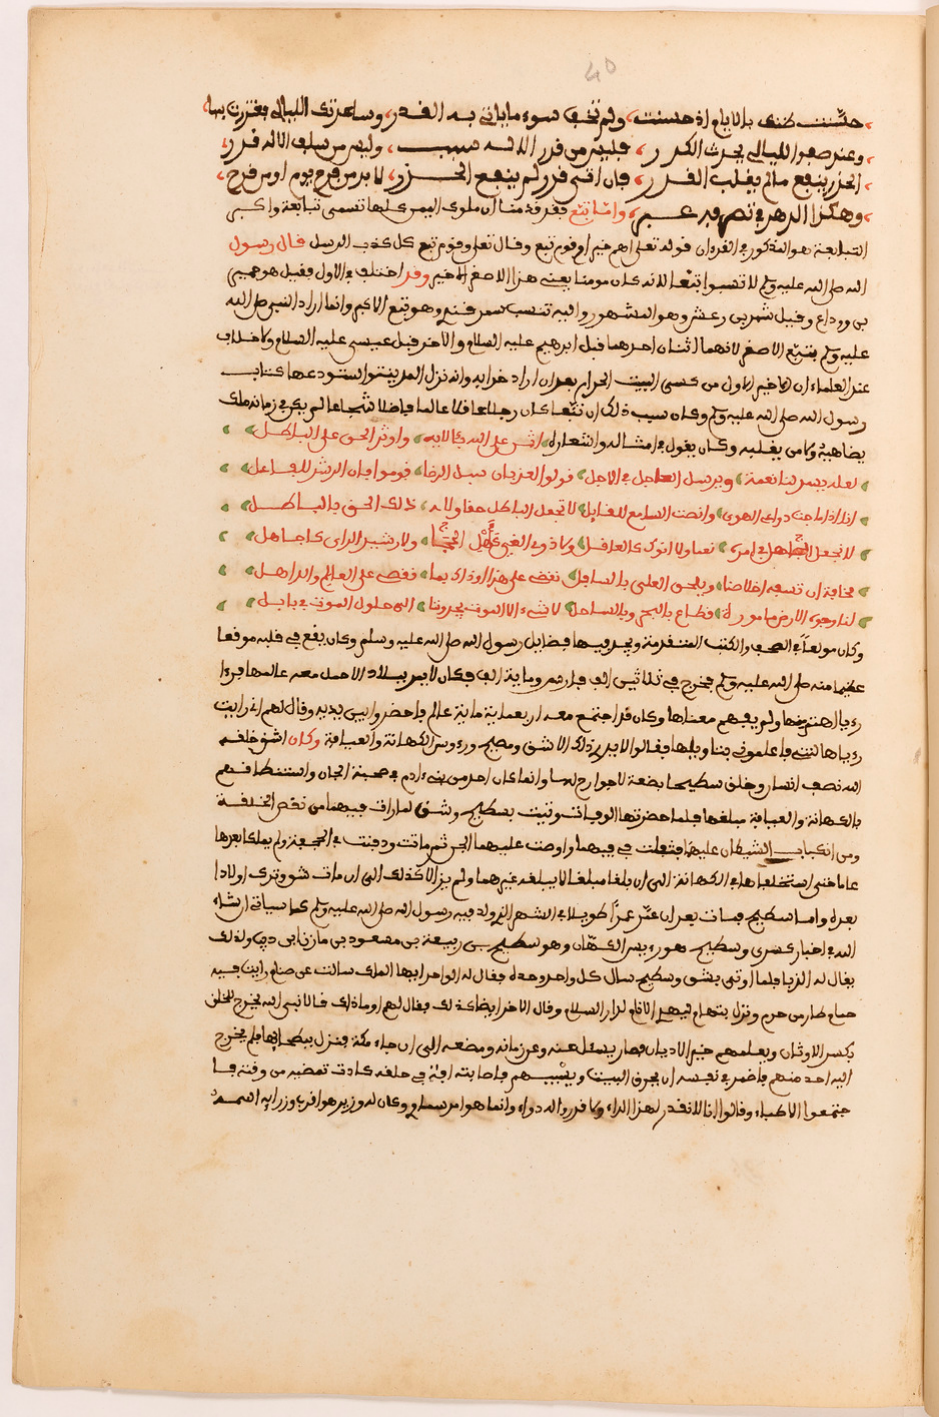 حسنت ظنك بالايام اذ حسنت ولم تخف سوء ما ياتي به القدر وساعدتك الليالي فغتررت بها
وعند صفو الليالي يحدث الكدر فليس من قدر الاله سبب وليس من سلف الاله قدر
الحذر ينفع مالم يغلب القدر فان اتى قدر لم ينفع الحذر لا بد من فرح يوم او من فرح
وهكذا الدهر في تصريفه عبر واما تبع فقد قدمنا ان ملوك اليمن كلها تسمى تبابعة واكبر
التبابعة هو المذكور في القرءان قوله تعلى اهم خير ام قوم تبع وقال تعلى وقوم تبع كل كذب الرسل قال رسول
الله صلى الله عليه وسلم لا تسبوا تبعا لانه كان مومنا يعني هذا الاصغر الاخير وقد اختلف في الاول فقيل هو حمير
بن وداع وقيل شمر بن رعش وهو المشهور واليه تنسب سمرقند وهو تبع الاكبر وانما اراد النبي صلى الله
عليه وسلم بتبع الاصغر لانهما اثنان احدهما قبل ابرهيم عليه السلام والاخر قبل عيسى عليه السلام ولا خلاف
عند العلماء ان الاخير الاول من كسى البيت الحرام بعد ان اراد خرابه وانه نزل المدينة واستودعها كتاب
رسول الله صلى الله عليه وسلم وكان سبب ذلك ان تبعا كان رجلا عاقلا عالما فاضلا شجاعا لم يكن في زمانه ملك
يضاهيه ولا من يغلبه وكان يقول في امثاله واشعاره اثن على الله بالايه واوثر الحق على الباطل
لعله يسر لنا نعمة ويرسل العاجل في الاجل قولوا لعدنان سبل الرضا قوموا فان الرشد للفاعل
انا اذا ماجت دواعي الهوى وانصت السامع للقايل لا تجعل الباطل حقا ولا ذلك الحق بالباطل
لا تجعل الجاهل في امره نعما ولا انوك كالعاقل ولا ذوي الغي كاهل الحجا ولا رشيد الراي كالجاهل
مخافة ان تسفه احلامنا ويلحق العلى بالسافل نقضى على هذا وذاك بما نقصه على العالم والذاهل
لنا وحوى الارض مامورة قطاع بالبحر وبالساحل لا شيء الا الموت يحروتا الى حلول الموت في بابل
وكان مولعا في الصحف والكتب المتقدمة ويجد فيها فضايل رسول الله صلى الله عليه وسلم وكان يقع في قلبه موقعا
عظيما منه صلى الله عليه وسلم فخرج في ثلاثين الف فارس وماية الف فكان لا يمر ببلاد الا حمل معه عالمها فرءا
رءيا اهتم بها ولم يفهم معناها وكان قد اجتمع معه اربعماية ماية عالم فاحضروا بين يديه وقال لهم اني رايت
رءيا هالتني فاعلموني بتاويلها فقالوا لا يدري ذلك الا شق وسطيح ورءوس الكهانة والعيافة وكان شق خلقه
الله نصف انسان وخلق سطيحا بضعة لا جوارح لها وانما كان احد من بني ءادم في صحبة الجان واستنطاقهم
بالكهانة والعيافة مبلغها فلما حضرتها الوفاة وتيت بسطيح وشق لما رات فيهما من نقص الخلقة
ومن انكباب الشيطان عليهما فتفلت في فيهما واوصت عليهما الجن ثم ماتت ودفنت في الجحفة ولم يملكا بعدها
عاما حتى استخلفاها في الكهانة الى ان بلغا مبلغا لا يبلغه غيرهما ولم يزالا كذلك الى ان مات شق وترك اولادا
بعده واما سطيح فمات بعد ان عمر عمرا طويلا في الشهر الذي ولد فيه رسول الله صلى الله عليه وسلم كما سياتي ان شاء
الله في اخبار كسرى وسطيح هو رءيس الكهان وهو سطيح بن ربيعة بن مسعود بن مازن ابن ديب ولذلك
يقال له الذيبا فلما اوتي بشق وسطيح سال كل واحد وحده فقال له الواحد ايها الملك سالت عن منام رايت فيه
حمام طار من حرم ونزل بتهام ليهدي الانام لدار السلام وقال الاخر ايضا كذلك فقال لهم او ما ذلك قالا نبي الله يخرج للخلق
يكسر الاوثان ويعلمهم خير الاديان فصار يسئل عنه وعن زمانه وموضعه الى ان جاء مكة ونزل ببطحايها فلم يخرج
اليه احد منهم فاضمر في نفسه ان يحرق البيت ويسبيهم فاصابته افة في حلقه كادت تمضيه من وقته فا
جتمعوا الاطباء وقالوا انا لا نقدر لهذا الداء ولا قدروا له دواء وانما هو امر سماوي وكان له وزير هو اقرب وزرايه اليه